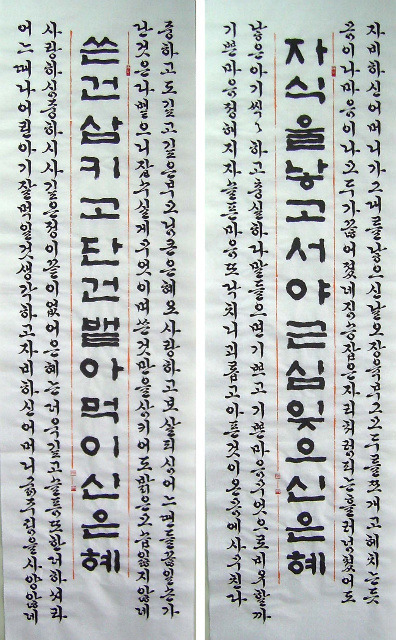 자비하신어머니가그대를낳으신날오장육부그모두를쪼개고헤치는듯
몸이나마음이나모두가끊어졌네짐승잡은자리처럼피는흘러넘쳤어도
자식을낳고서야근심잊으신은혜
낳은아기씩씩하고충실하다말들으면기쁘고기쁜마음무엇으로비유할까
기쁜마음정해지자슬픈마음또닥치니괴롭고아픈것이온몸에사무친다
중하고도깊고깊은부모님큰은혜로사랑하고보살피심어느때들끊일는가
단것은다뱉으니잡수실게무엇이며쓴것만을삼키어도밝은모습잃지않네
쓴건삼키고단건뱉아먹이신은혜
사랑하심중하시사깊은정이끝이없어은혜는더욱깊고슬픔또한더하셔라
어느때나어린아기잘먹일것생각하고자비하신어머니굶주림을사양않네